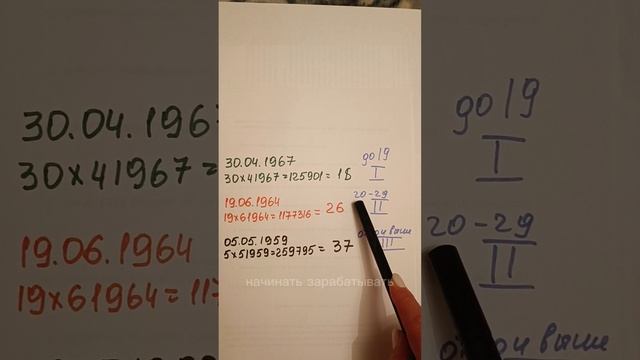 30.04.1967
30×41967=125901= 18
до 19
I
19.06.1964
19×61964=1177316= 26
20-29
II
05.05.1959
5×51959=259795= 37
и выше
III
начинать зарабатывать